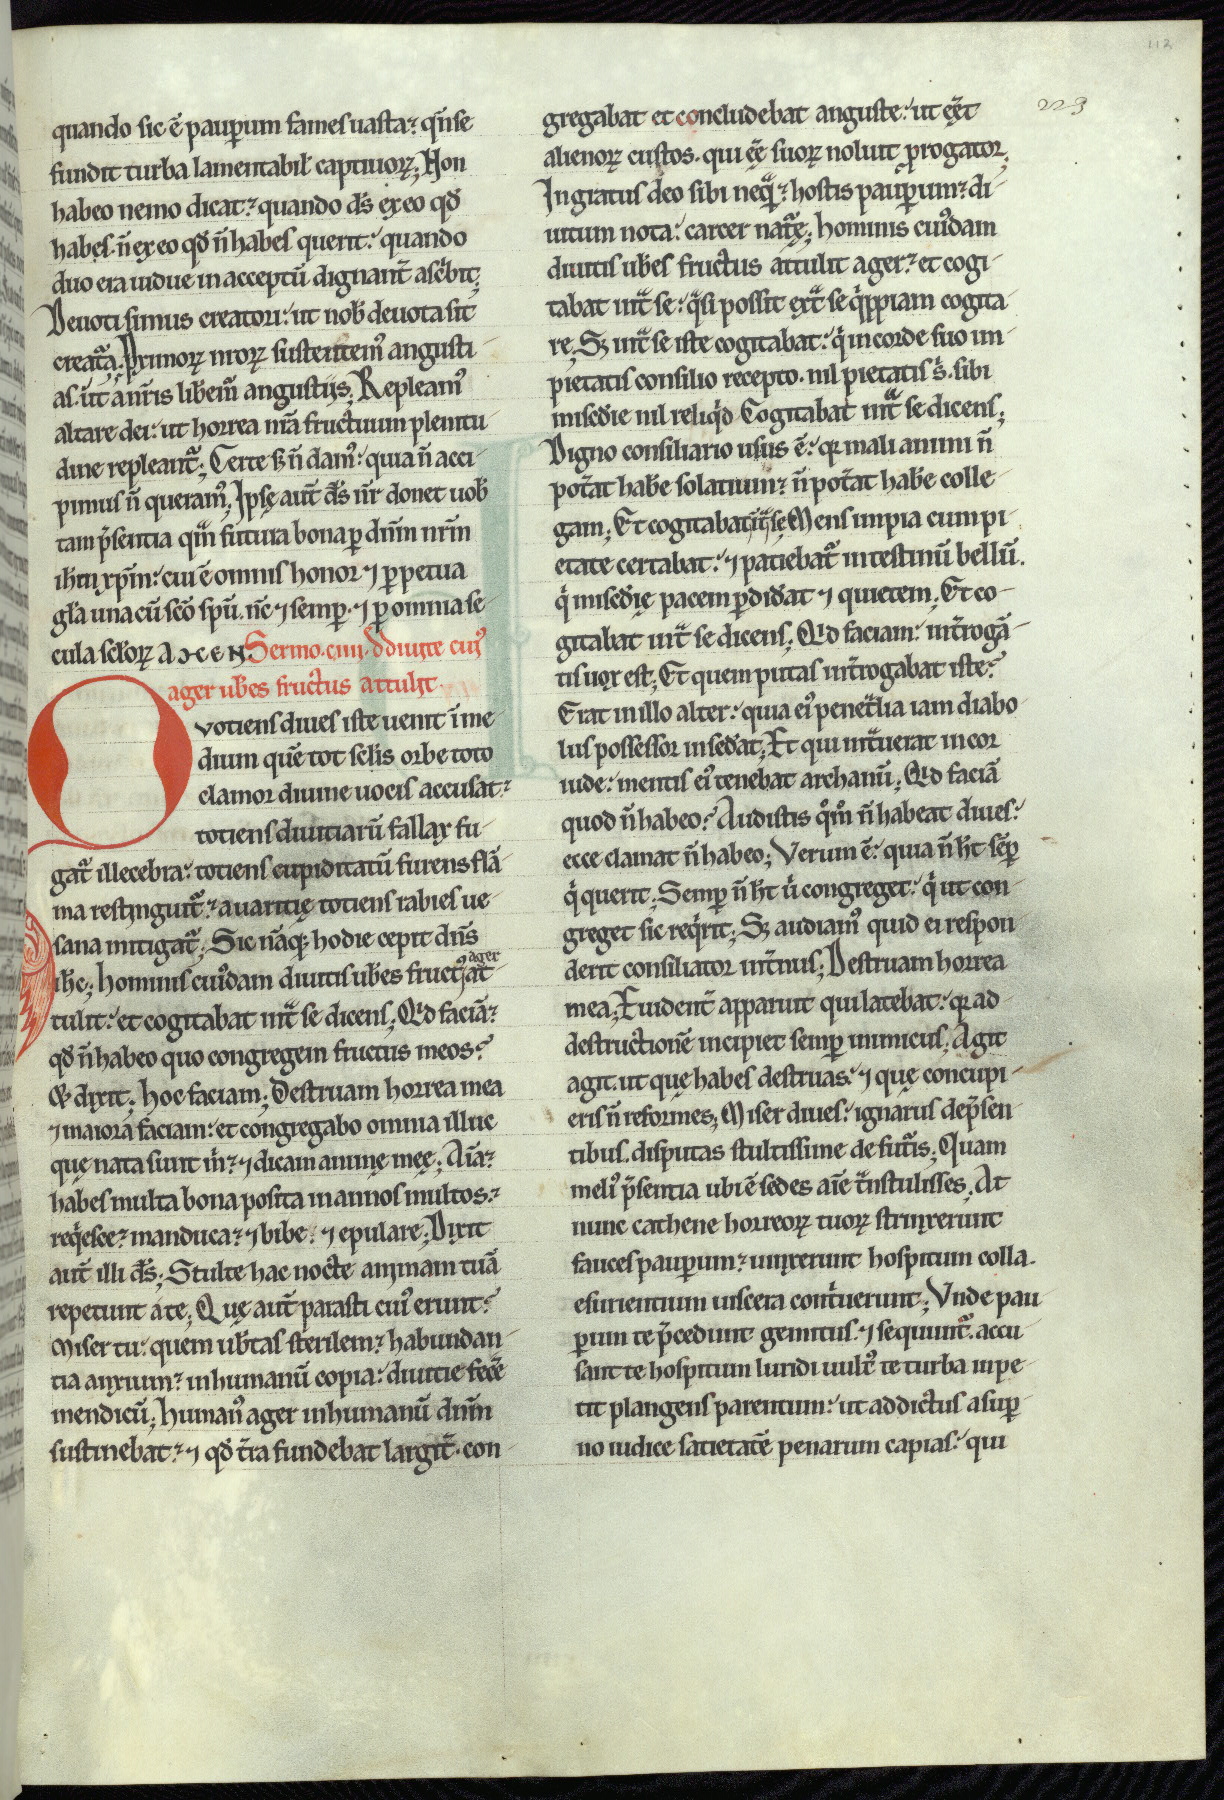 112
223
quando sic ē paup̄um fames uasta? q̄n se
fundit turba lamentabil̄ captiuoꝝ; Non
habeo nemo dicat? quando d̄s ex eo qd̄
habes. n̄ ex eo qd̄ n̄ habes querit: quando
duo era uidue in acceptū dignant̄ asc̄bit;
Deuoti simus creatori: ut nob̄ deuota sit
creat̄a; Primoꝝ nr̄oꝝ sustentem᷒ angusti-
as. ut a nr̄is lib̄em̄ angustijs; Repleam᷒
altare dei: ut horrea nr̄a fructuum plenitu
dine repleant̄; Certe si n̄ dam᷒: quia n̄ acci-
pimus n̄ queram᷒; Ipse aut̄ d̄s n̄r donet uob̄
tam p̄sentia qm̄ futura bona p̄ dn̄m nr̄m
ih̄m xp̄m: cui ē omnis honor ⁊ p̄petua
gl̄a una cū sc̄o sp̄u. n̄c ⁊ semp̄. ⁊ p̄ omnia se-
cula sc̄loꝝ AMEN. Sermo .ciiii. d̄ diuite cui᷒
ager ub̄es fructus attulit.
Quotiens diues iste uenit ī me
dium quē tot sc̄lis orbe toto
clamor diuine uocis accusat?
totiens diuitiarū fallax fu-
gat̄ illecebra: totiens cupiditatū furens flā-
ma restinguit̄? auaritię totiens rabies ue-
sana mitigat̄; Sic nāq; hodie cepit dn̄s
ager
ih̄c; Hominis cui᷒dam diuitis ub̄es fruct᷒ at
tulit: et cogitabat int̄ se dicens; Qd̄ faciā?
qd̄ n̄ habeo quo congregem fructus meos?
Et dixit; hoc faciam; Destruam horrea mea
⁊ maiora faciam: et congregabo omnia illuc
quę nata sunt m̄? ⁊ dicam animę meę; Aīa?
habes multa bona posita in annos multos?
reqͥesce? manduca? ⁊ bibe: ⁊ epulare; Dixit
aut̄ illi d̄s; Stulte hac nocte animam tuā
repetunt a te; Quę aut̄ parasti cui᷒ erunt?
Miser tu: quem ub̄tas sterilem? habundan-
tia anxium? inhumanū copia: diuitie fecē
mendicū; Human᷒ ager inhumanū dn̄m
sustinebat? ⁊ qd̄ t̄ra fundebat largit̄. con-
gregabat et concludebat anguste: ut eēt
alienoꝝ custos. qui eē suoꝝ noluit p̄rogator.
Ingratus deo sibi neqͣ? hostis paup̄um? di-
uitum nota: carcer nat̄ę; hominis cui᷒dam
diuitis ub̄es fructus attulit ager? et cogi-
tabat int̄ se: qͣsi possit ext̄ se qͥppiam cogita
re; Sꝫ int̄ se iste cogitabat: qͥ in corde suo im-
pietatis consilio recepto. nil pietatis s̄. sibi
misc̄die nil reliqͥd Cogitabat int̄ se dicens;
Digno consiliario usus ē: qr mali animi n̄
pot̄at hab̄e solatium? n̄ pot̄at hab̄e colle-
gam; Et cogitabat int̄ se; Mens impia cum pi-
etate certabat: ⁊ patiebat̄ intestinū bellū.
qͥ misc̄dię pacem p̄did̄at ⁊ quietem; Et co-
gitabat int̄ se dicens; Qd̄ faciam: int̄rogā-
tis uox est; Et quem putas int̄rogabat iste?
Erat in illo alter: quia ei᷒ penet̄lia iam diabo-
lus possessor insed̄at; Et qui int̄uerat in cor
iude: mentis ei᷒ tenebat archanū; Qd̄ faciā
quod n̄ habeo? Audistis qͦm᷒ n̄ habeat diues?
ecce clamat n̄ habeo; Verum ē: quia n̄ h̄t sēp̄
qͥ querit; Semp̄ n̄ h̄t ū congreget: qͥ ut con-
greget sic reqͥrit; Sꝫ audiam᷒ quid ei respon-
derit consiliator int̄nus; Destruam horrea
mea; Euident̄ apparuit qui latebat: qr ad
destructionē incipiet semp̄ inimicus; Agit
agit. ut quę habes destruas: ⁊ quę concupi-
eris n̄ reformes; Miser diues: ignarus de p̄sen-
tibus. disputas stultissime de fut̄is; Quam
meli᷒ p̄sentia ubi ē sedes aīe t̄nstulisses; At
nunc cathene horreoꝝ tuoꝝ strinxerunt
fauces paup̄um? uinxerunt hospitum colla.
esurientium uiscera cont̄uerunt; Vnde pau
p̄um te p̄cedunt gemitus: ⁊ sequunt̄. accu-
sant te hospitum luridi uult᷒ te turba inpe-
tit plangens parentum: ut addictus a sup̄
no iudice satietatē penarum capias: qui